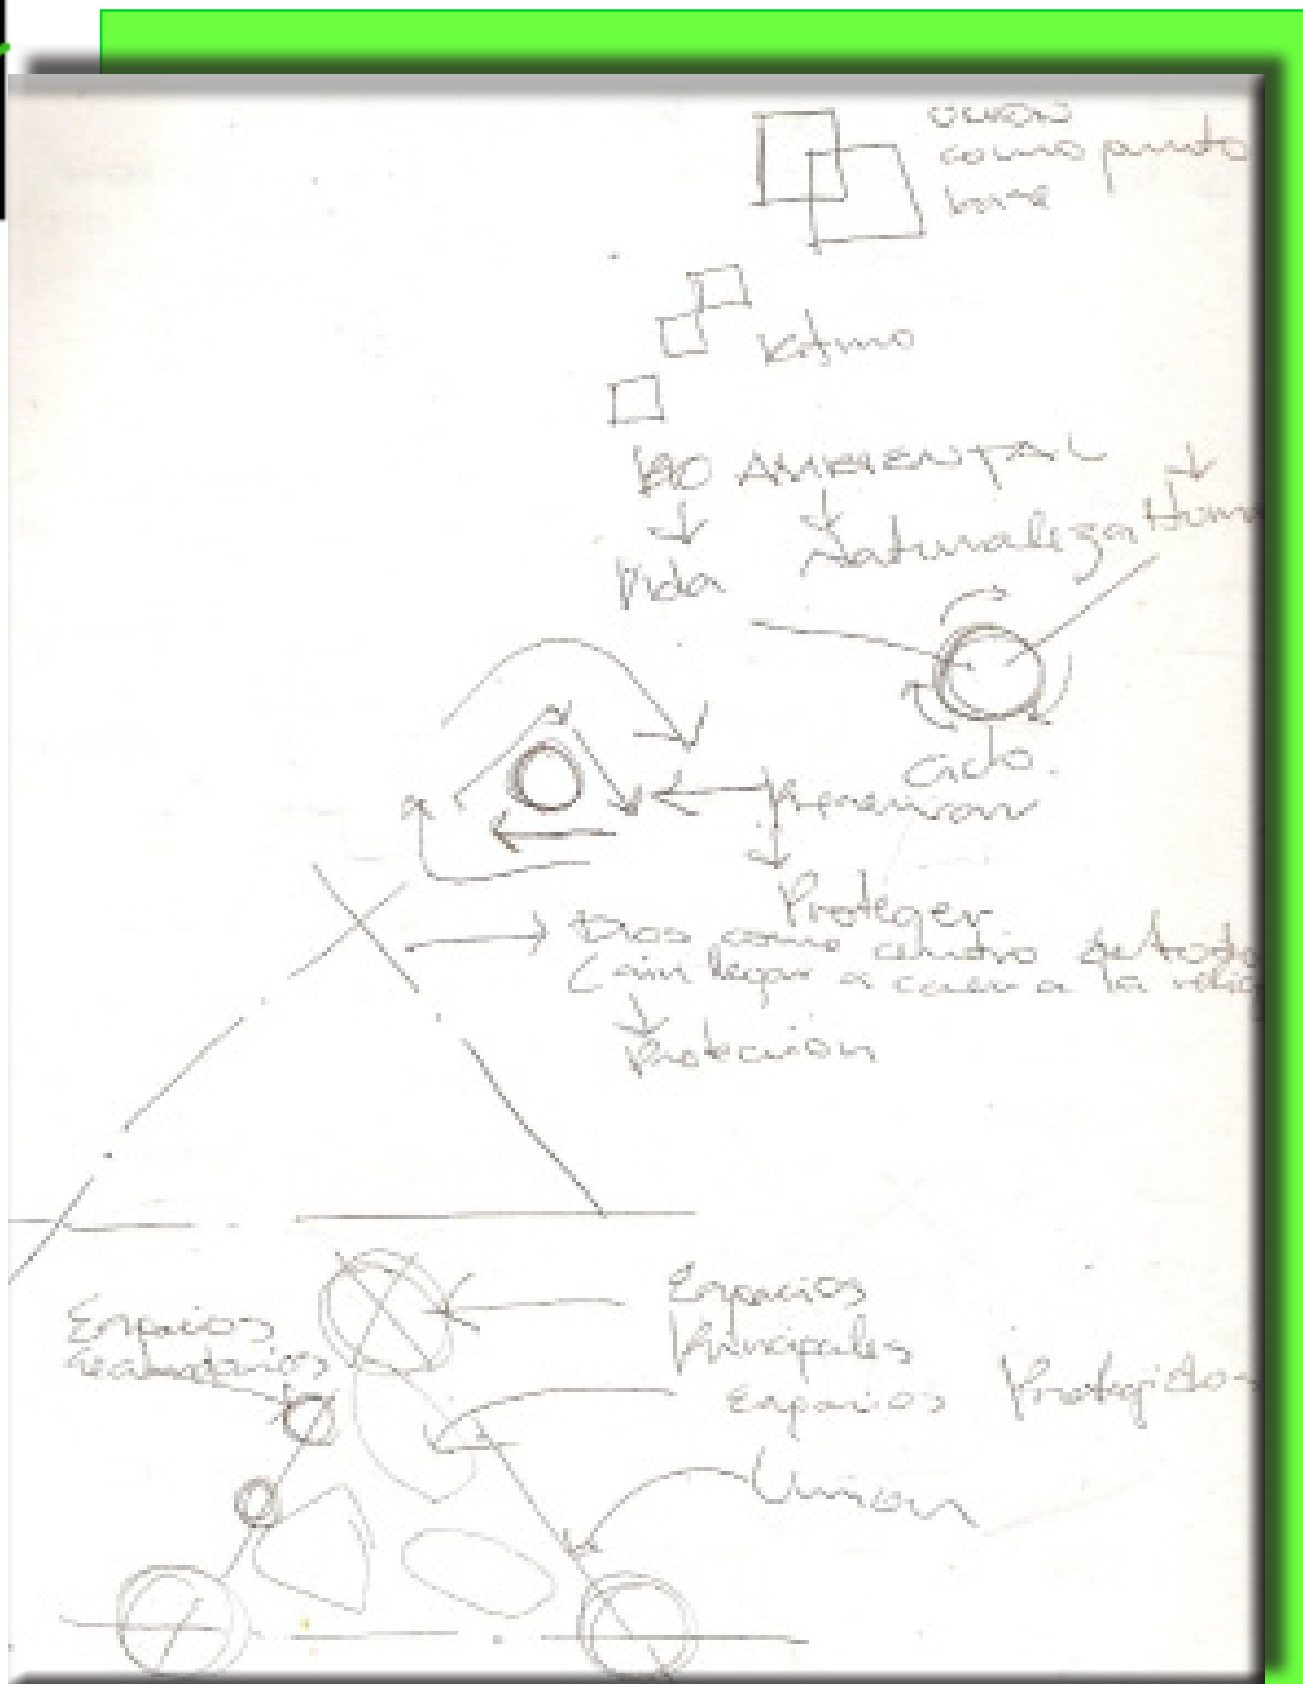 union
como punto
base
Ritmo
BIO AMBIENTAL
Vida Naturaleza
Ciclo.
Prevencion
Proteger
Dios como centro de todo
(sin llegar a caer a la
Proteccion
Espacios
Secundarios
Espacios
Principales
Espacios Protegidos
Union